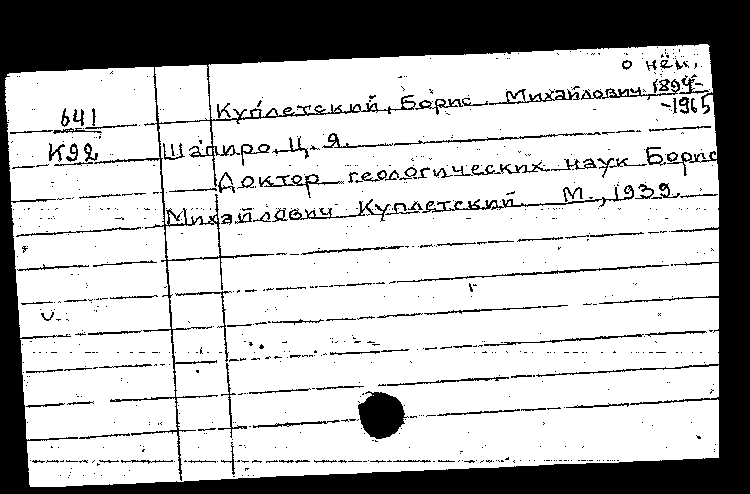 о нём.
641 Куплетский, Борис Михайлович, 1894-
-1965
К92 Шапиро, Ц. Я.
Доктор геологических наук Борис
Михайлович Куплетский. М., 1939.